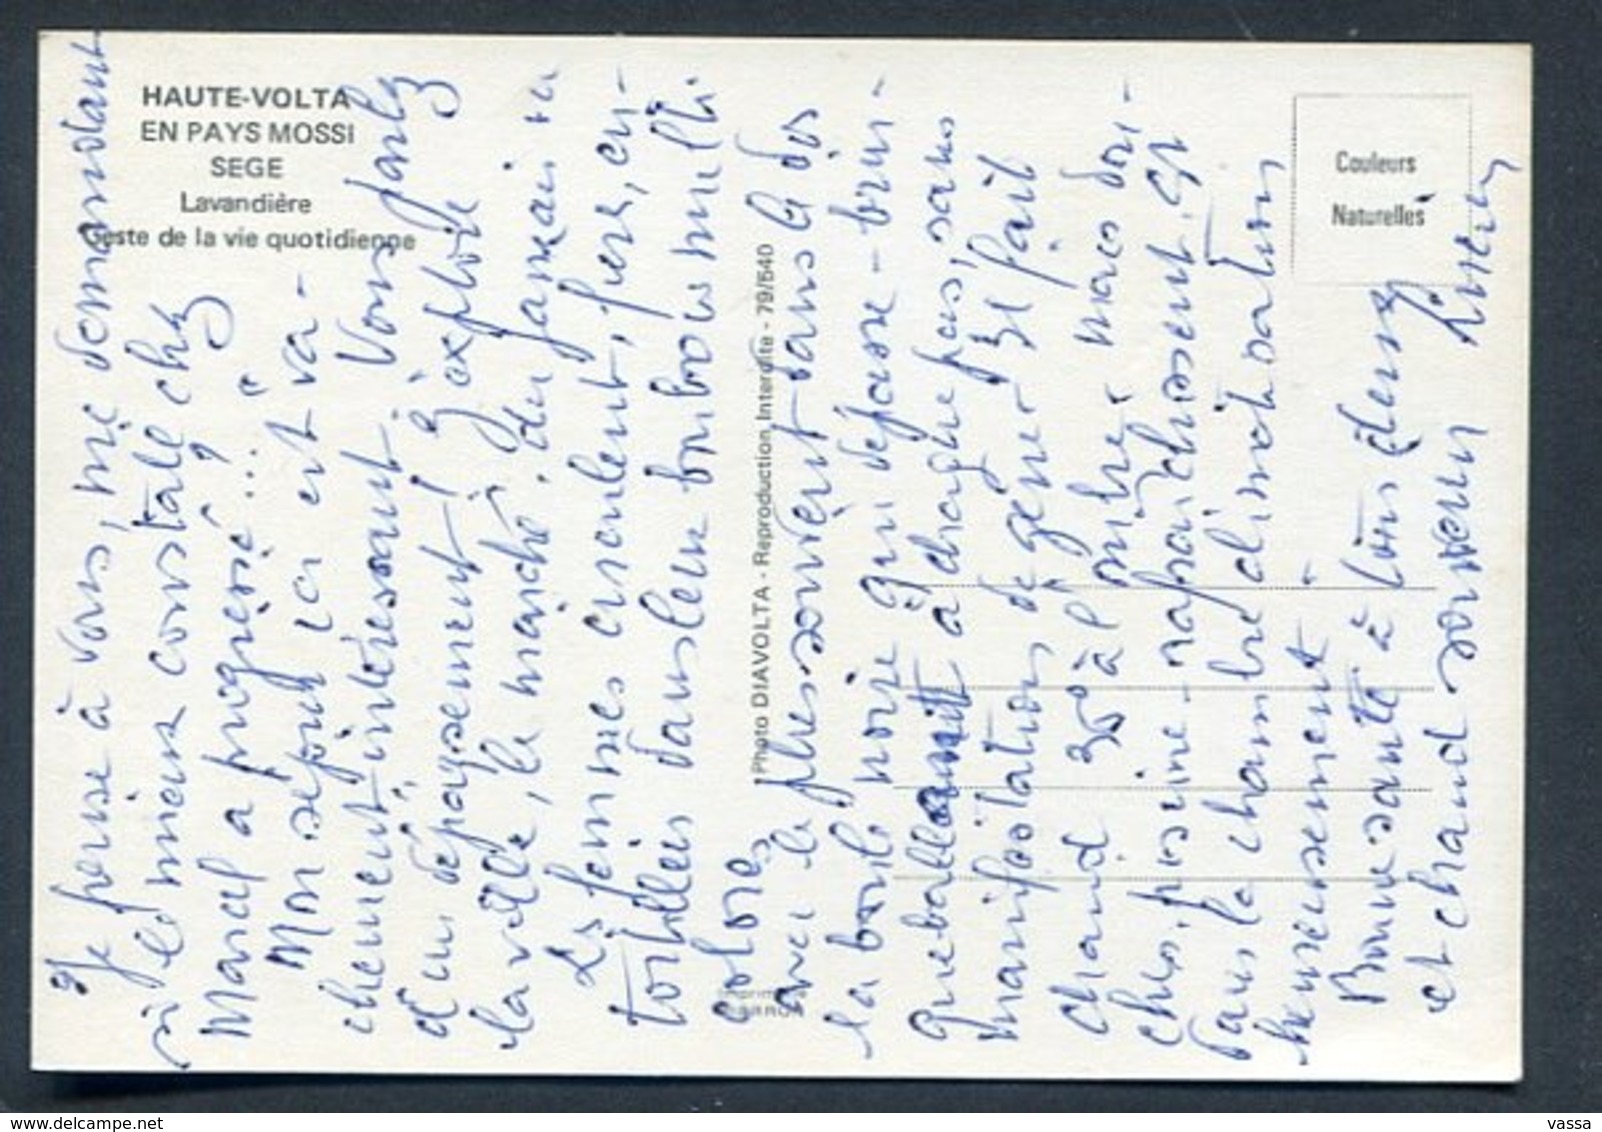 HAUTE-VOLTA
EN PAYS MOSSI
SEGE
Lavandière
Geste de la vie quotidienne
Couleurs
Naturelles
Photo DIAVOLTA - Reproduction Interdite - 79/540
Je pense à vous, me demandant
si le mieux constaté chez
Marcel a progressé ...
Mon séjour ici est va-
chement intéressant. Vous parlez
d'un dépaysement! J'explore
la ville, le marché, du jamais vu
Les femmes circulent, fières, en-
tortillées dans leur boubous multi
colores
avec le plus souvent dans le dos
la boule noire qui dépasse - brin-
queballant à chaque pas, sans
manifestation de gêner Il fait
chaud 35° à l'ombre mais dou-
ches, piscine - rafraichissent. Et
puis la chambre climatisation
heureusement.
Bonne santé à tous deux
et chaud souvenir Lucien
vassa